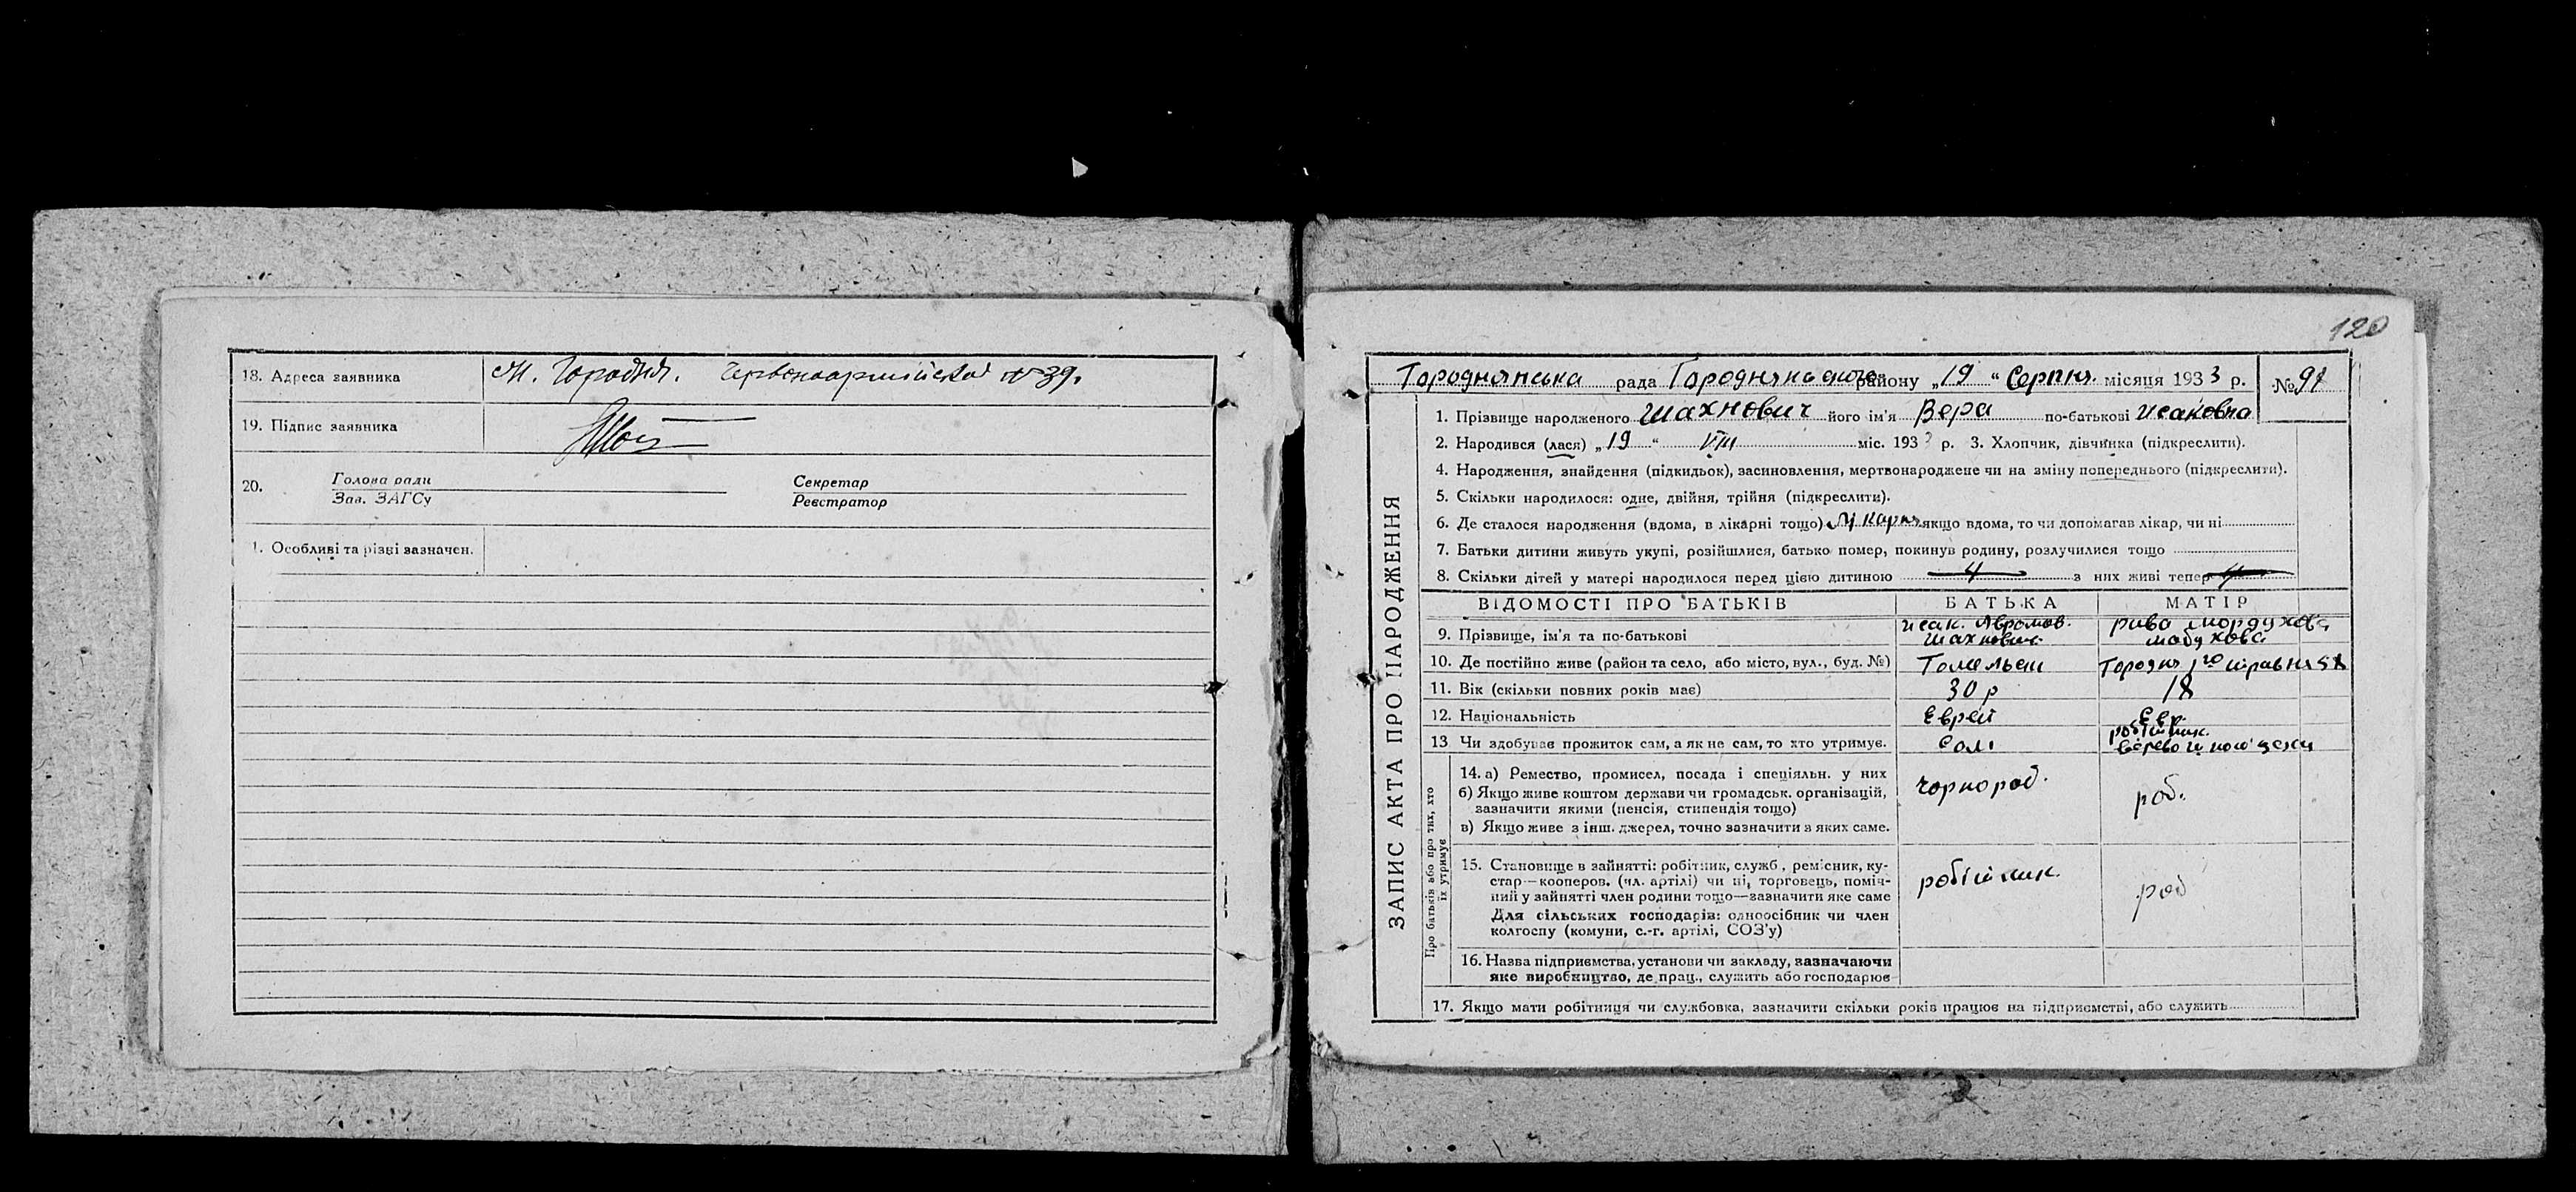 18. Адреса заявника М. Городня. Червоноармійска № 39.
19. Підпис заявника
20. Голова ради Секретар
Зав. ЗАГСу Реєстратор
1. Особливі та різні зазначен.
120
ЗАПИС АКТА ПРО НАРОДЖЕННЯ
Городнянська рада Городнянського району „19“ Серпня місяця 1933 р. № 91
1. Прізвище народженого Шахнович його ім'я Вера по-батькові Исаковна
2. Народився (лася) „19“ VIII міс. 1933 р. 3. Хлопчик, дівчинка (підкреслити).
4. Народження, знайдення (підкидьок), засиновлення, мертвонароджене чи на зміну попереднього (підкреслити).
5. Скільки народилося: одне, двійня, трійня (підкреслити).
6. Де сталося народження (вдома, в лікарні тощо) якщо вдома, то чи допомагав лікар, чи ні
7. Батьки дитини живуть укупі, розійшлися, батько помер, покинув родину, розлучилися тощо
8. Скільки дітей у матері народилося перед цією дитиною 4 з них живі тепер 4
ВІДОМОСТІ ПРО БАТЬКІВ БАТЬКА МАТІР
9. Прізвище, ім'я та по-батькові Исак. Авромов. Рива Мордухова
Шахнович
10. Де постійно живе (район та село, або місто, вул., буд. №) Гомельськ Городня 1го травня
11. Вік (скільки повних років має) 30 р 18
12. Національність Еврей Евр.
13 Чи здобував прожиток сам, а як не сам, то хто утримує. Сам робітник.
Про батьків або про тих, хто їх утримує
14. а) Ремество, промисел, посада і спеціяльн. у них чорнороб. роб.
б) Якщо живе коштом держави чи громадськ. організацій,
зазначити якими (пенсія, стипендія тощо)
в) Якщо живе з інш. джерел, точно зазначити з яких саме.
15. Становище в зайнятті: робітник, служб., ремісник, ку- робітник. роб
стар—кооперов. (чл. артілі) чи ні, торговець, поміч-
ний у зайнятті член родини тощо—зазначити яке саме
Для сільських господарів: одноосібник чи член
колгоспу (комуни, с.-г. артілі, СОЗ'у)
16. Назва підприємства, установи чи закладу, зазначаючи
яке виробництво, де прац., служить або господарює
17. Якщо мати робітниця чи службовка, зазначити скільки років працює на підприємстві, або служить